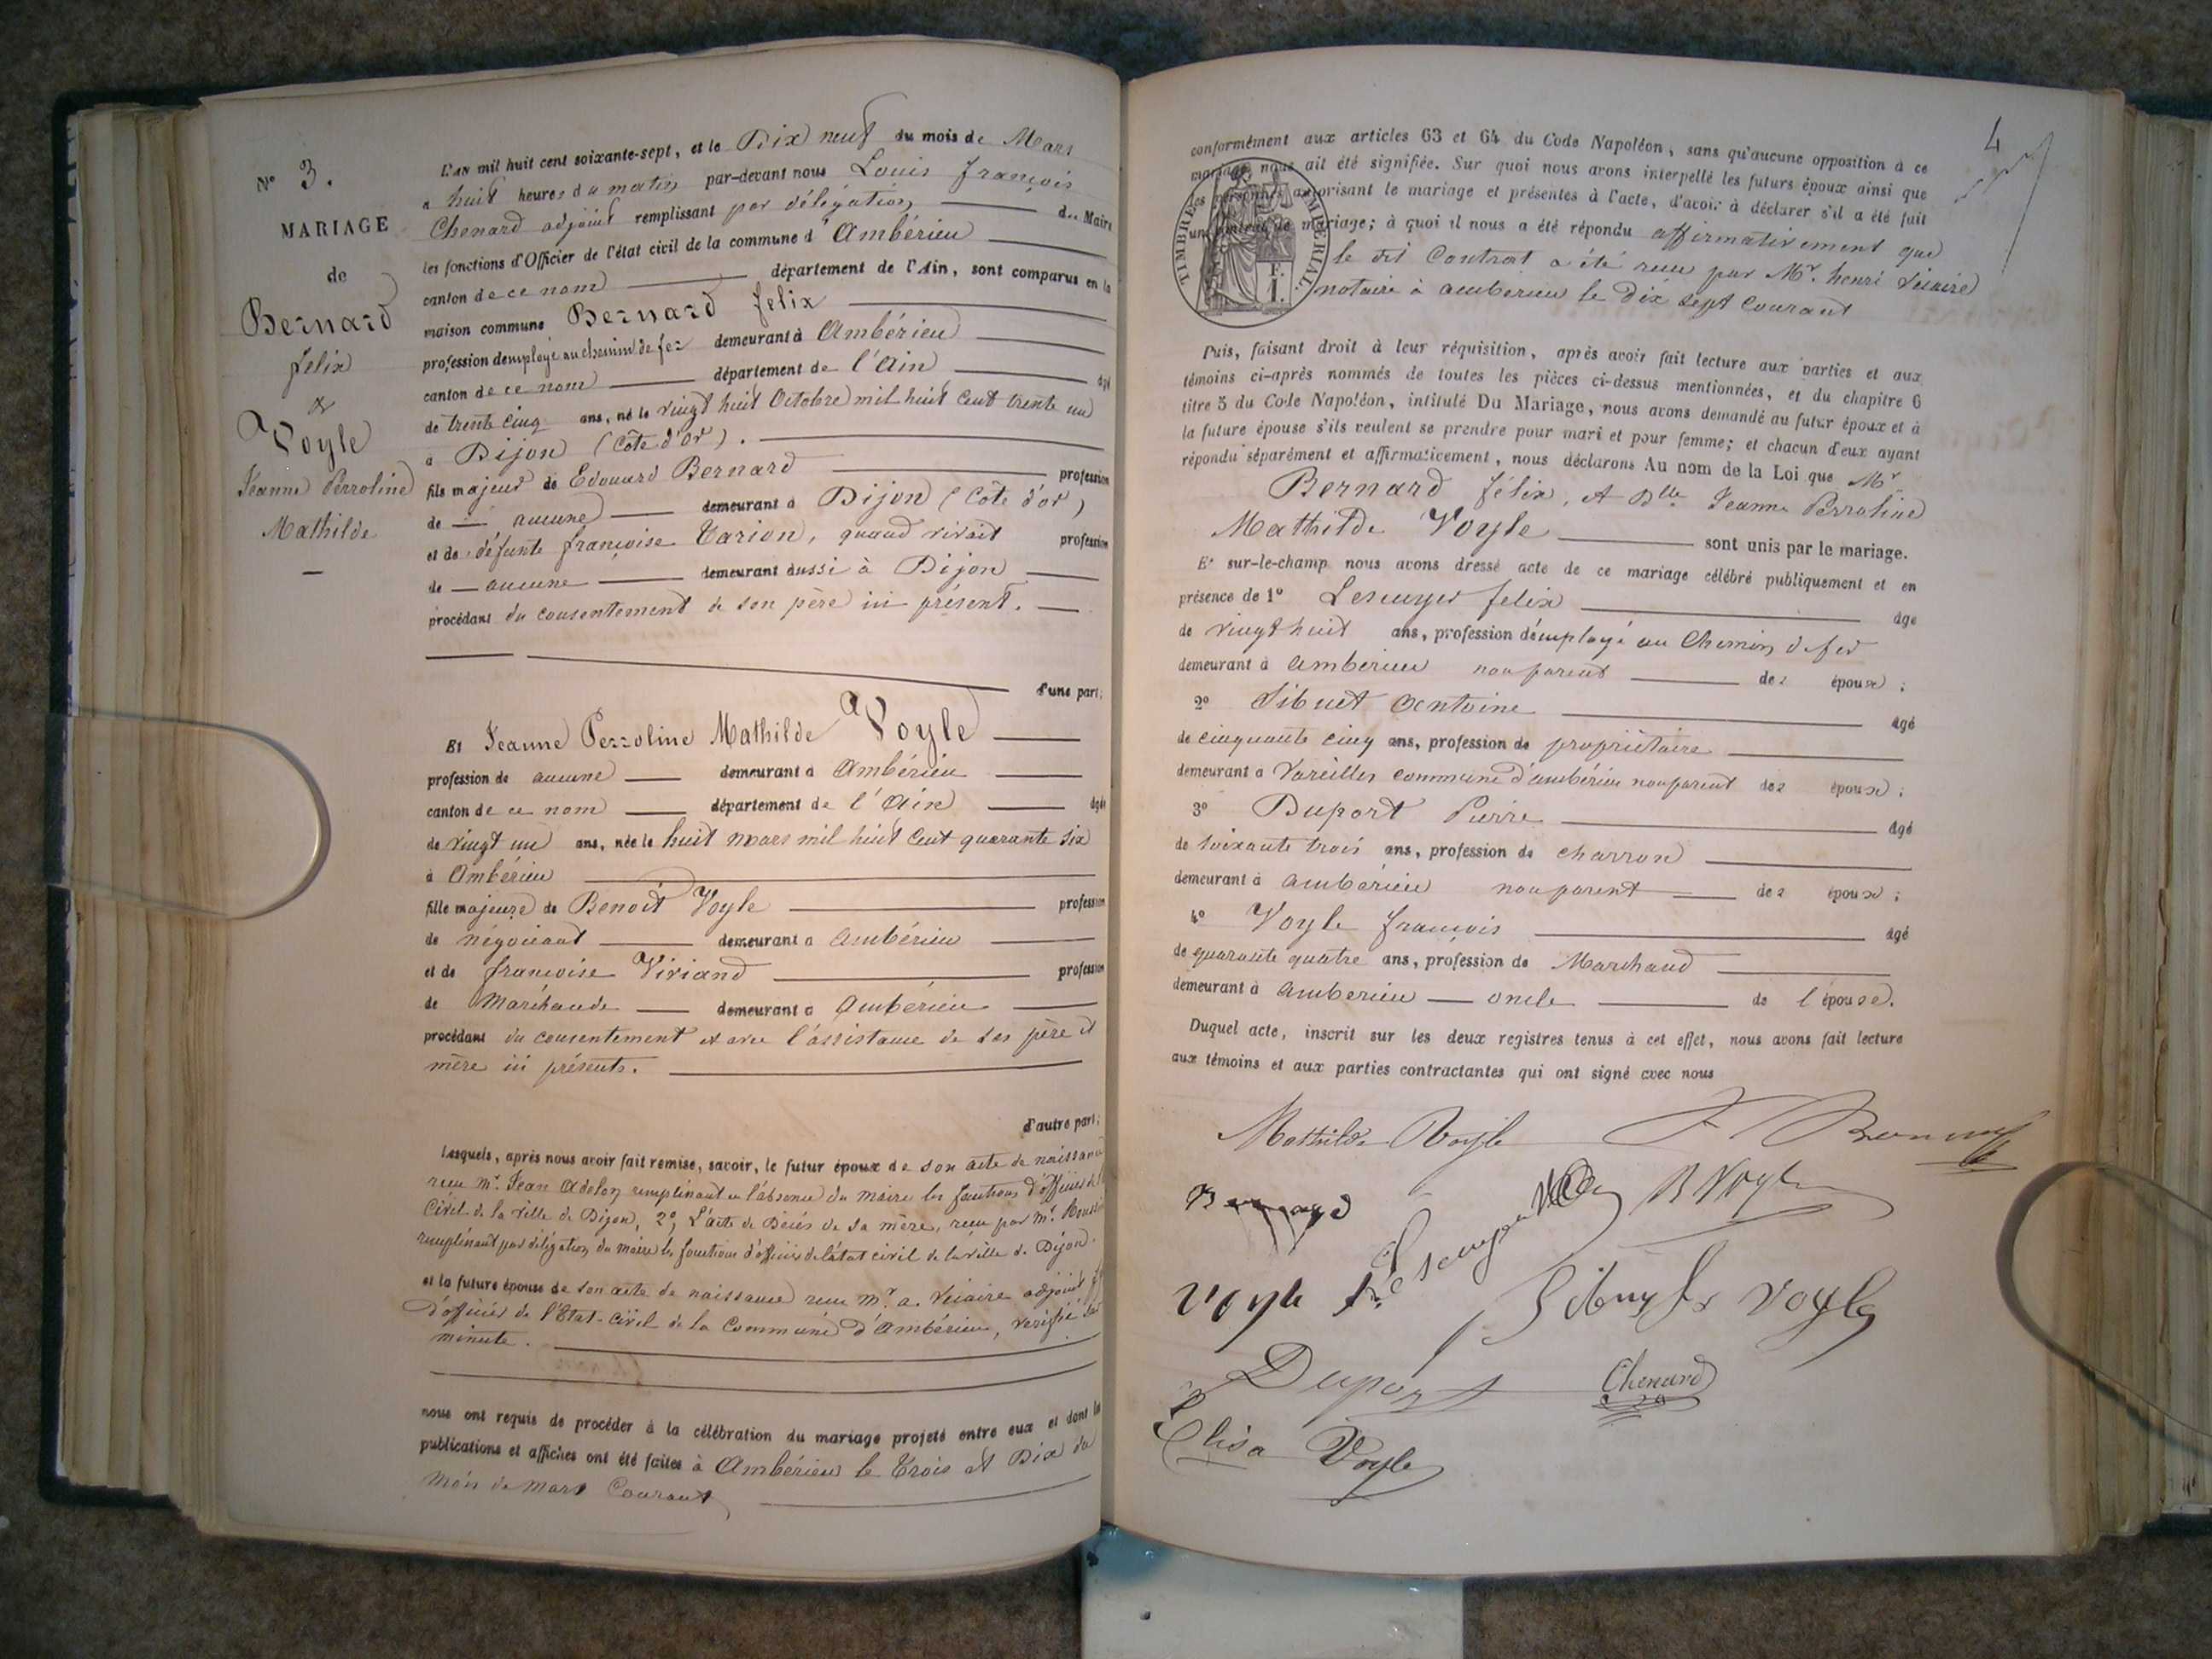 N° 3.
MARIAGE
de
Bernard
felix
&
Voyle
Jeanne Perroline
Mathilde
L'an mil huit cent soixante-sept, et le Dix neuf du mois de Mars
a huit heures du matin par-devant nous Louis françois
Chenard adjoint remplissant par délégation du Maire
les fonctions d'Officier de l'état civil de la commune d'Ambérieu
canton de ce nom département de l'Ain, sont comparus en la
maison commune Bernard felix
profession d'employé au chemin de fer demeurant à Ambérieu
canton de ce nom département de l'Ain agé
de trente cinq ans, né le vingt huit Octobre mil huit Cent trente un
à Dijon (Côte d'or).
fils majeur de Edouard Bernard profession
de aucune demeurant à Dijon (Côte d'or)
et de défunte françoise Tarion, quand vivait profession
de aucune demeurant aussi à Dijon
procédant du consentement de son père ici présent.
d'une part;
Et Jeanne Perroline Mathilde Voyle
profession de aucune demeurant à Ambérieu
canton de ce nom département de l'Ain agée
de vingt un ans, née le huit mars mil huit Cent quarante six
à Ambérieu
fille majeure de Benoit Voyle profession
de négociant demeurant à Ambérieu
et de françoise Viviand profession
de Marchande demeurant à Ambérieu
procédant du consentement et avec l'assistance de ses père et
mère ici présents.
d'autre part;
Lesquels, après nous avoir fait remise, savoir, le futur époux de son acte de naissance
reçu Mr. Jean Adelon remplissant en l'absence du maire les fonctions d'officier de l'
Civil de la ville de Dijon, 2°, L'acte de Décès de sa mère, reçu par Mr.
remplissant par délégation du maire les fonctions d'officier de l'état civil de la ville de Dijon.
et la future épouse de son acte de naissance reçu Mr. a. adjoint
d'officier de l'Etat-Civil de la Commune d'Ambérieu, vérifié sur
minute.
nous ont requis de procéder à la célébration du mariage projeté entre eux et dont les
publications et affiches ont été faites à Ambérieu le Trois et Dix du
mois de mars Courant
4
conformément aux articles 63 et 64 du Code Napoléon, sans qu'aucune opposition à ce
mariage nous ait été signifiée. Sur quoi nous avons interpellé les futurs époux ainsi que
les personnes autorisant le mariage et présentes à l'acte, d'avoir à déclarer s'il a été fait
un contrat de mariage; à quoi il nous a été répondu affirmativement que
le dit Contrat a été reçu par Mr. henri
notaire à amberieu le Dix sept Courant
TIMBRE IMPÉRIAL.
F.
1.
Puis, faisant droit à leur réquisition, après avoir fait lecture aux parties et aux
témoins ci-après nommés de toutes les pièces ci-dessus mentionnées, et du chapitre 6
titre 5 du Code Napoléon, intitulé Du Mariage, nous avons demandé au futur époux et à
la future épouse s'ils veulent se prendre pour mari et pour femme; et chacun d'eux ayant
répondu séparément et affirmativement, nous déclarons Au nom de la Loi que Mr
Bernard félix, et Dlle Jeanne Perroline
Mathilde Voyle sont unis par le mariage.
Et sur-le-champ nous avons dressé acte de ce mariage célébré publiquement et en
présence de 1° Lescuyer felix âgé
de vingt huit ans, profession d'employé au Chemin de fer
demeurant à ambérieu non parent des époux;
2° Sibuet Antoine agé
de cinquante cinq ans, profession de propriétaire
demeurant à Vareilles commune d'ambérieu non parent des époux;
3° Duport Pierre âgé
de soixante trois ans, profession de charron
demeurant à ambérieu non parent des époux;
4° Voyle françois agé
de quarante quatre ans, profession de Marchand
demeurant à amberieu oncle de l'épouse.
Duquel acte, inscrit sur les deux registres tenus à cet effet, nous avons fait lecture
aux témoins et aux parties contractantes qui ont signé avec nous
Mathilde Voyle F Bernard
Bernard B Voyle
Lescuyer
Voyle Sibuet Voyle
Duport Chenard
Elisa Voyle